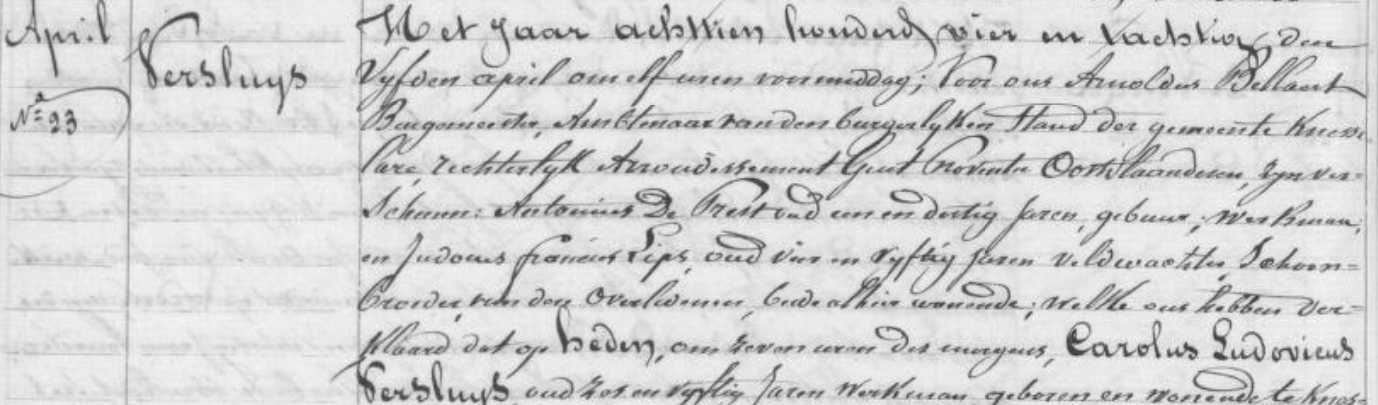 April
Versluys
Nº 23
Het Jaar achttien honderd vier en tachtig, den
Vyfden april om elf uren voormiddag; Voor ons Arnoldus Bellaert
Burgemeester, Ambtenaar van den burgerlyken Stand der gemeente Knesse
lare, rechterlyk Arrondissement Gent Provintie Oostvlaanderen, zyn ver=
schenen: Antonius De Prest oud een en dertig Jaren, gebuur, werkman,
en Judocus francies Lips, oud vier en vyftig Jaren veldwachter, Schoon=
broeder, van den Overledenen, beide alhier wonende; welke ons hebben ver=
klaard dat op heden, om zeven uren des morgens, Carolus Ludovicus
Versluys, oud zes en vyftig Jaren Werkman geboren en wonende te Knes=